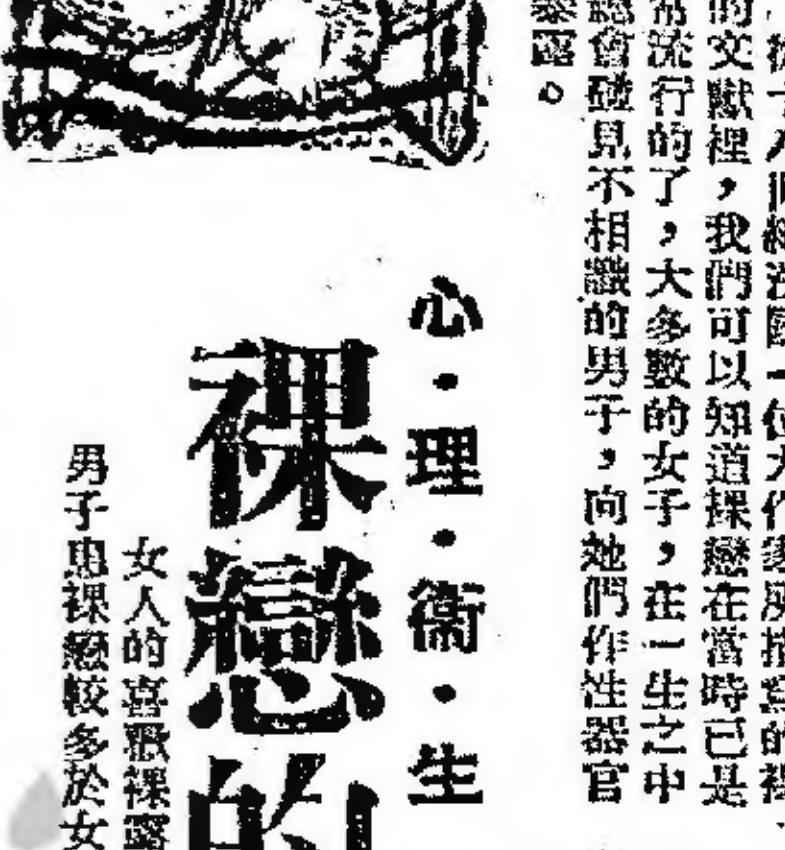 的文獻裡，我們可以知道裸戀在當時已是
常流行的了，大多數的女子，在一生之中
總會碰見不相識的男子，向她們作性器官
露。
心·理·衞·生
裸戀的
女人的喜歡裸露
男子患裸戀較多於女